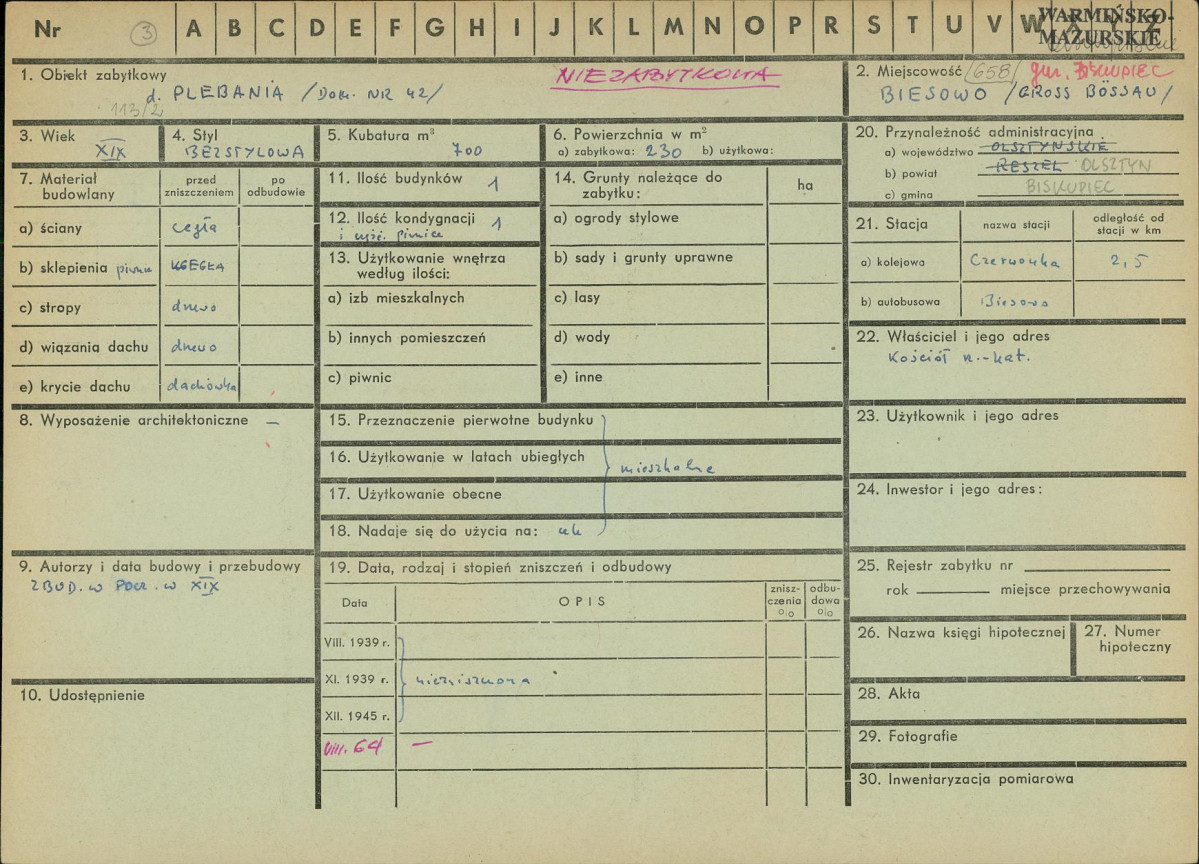 Nr (3) A B C D E F G H I J K L M N O P R S T U V W
WARMIŃSKO-
MAZURSKIE
1. Obiekt zabytkowy
NIEZABYTKOWA
d. PLEBANIA /DOM. NR 42/
113/2
2. Miejscowość (658) gm. BISKUPIEC
BIESOWO /GROSS BÖSSAU/
3. Wiek
XIX
4. Styl
BEZSTYLOWA
5. Kubatura m³
700
6. Powierzchnia w m²
a) zabytkowa: 230 b) użytkowa:
20. Przynależność administracyjna
a) województwo OLSZTYŃSKIE
b) powiat RESZEL OLSZTYN
c) gmina BISKUPIEC
7. Materiał budowlany
przed zniszczeniem
po odbudowie
a) ściany cegła
b) sklepienia piwn CEGŁA
c) stropy drewo
d) wiązania dachu drewo
e) krycie dachu dachówka
11. Ilość budynków 1
12. Ilość kondygnacji 1
i część. piwnice
13. Użytkowanie wnętrza
według ilości:
a) izb mieszkalnych
b) innych pomieszczeń
c) piwnic
14. Grunty należące do
zabytku:
ha
a) ogrody stylowe
b) sady i grunty uprawne
c) lasy
d) wody
e) inne
21. Stacja
nazwa stacji
odległość od
stacji w km
a) kolejowa Czerwonka 2,5
b) autobusowa Biesowo
22. Właściciel i jego adres
Kościół r.-kat.
8. Wyposażenie architektoniczne –
15. Przeznaczenie pierwotne budynku
16. Użytkowanie w latach ubiegłych
mieszkalne
17. Użytkowanie obecne
18. Nadaje się do użycia na:
23. Użytkownik i jego adres
24. Inwestor i jego adres:
9. Autorzy i data budowy i przebudowy
ZBUD. w POCZ. w XIX
10. Udostępnienie
19. Data, rodzaj i stopień zniszczeń i odbudowy
Data
OPIS
znisz-
czenia
%
odbu-
dowa
%
VIII. 1939 r.
XI. 1939 r. niezniszczona
XII. 1945 r.
VIII. 64 –
25. Rejestr zabytku nr
rok miejsce przechowywania
26. Nazwa księgi hipotecznej
27. Numer
hipoteczny
28. Akta
29. Fotografie
30. Inwentaryzacja pomiarowa